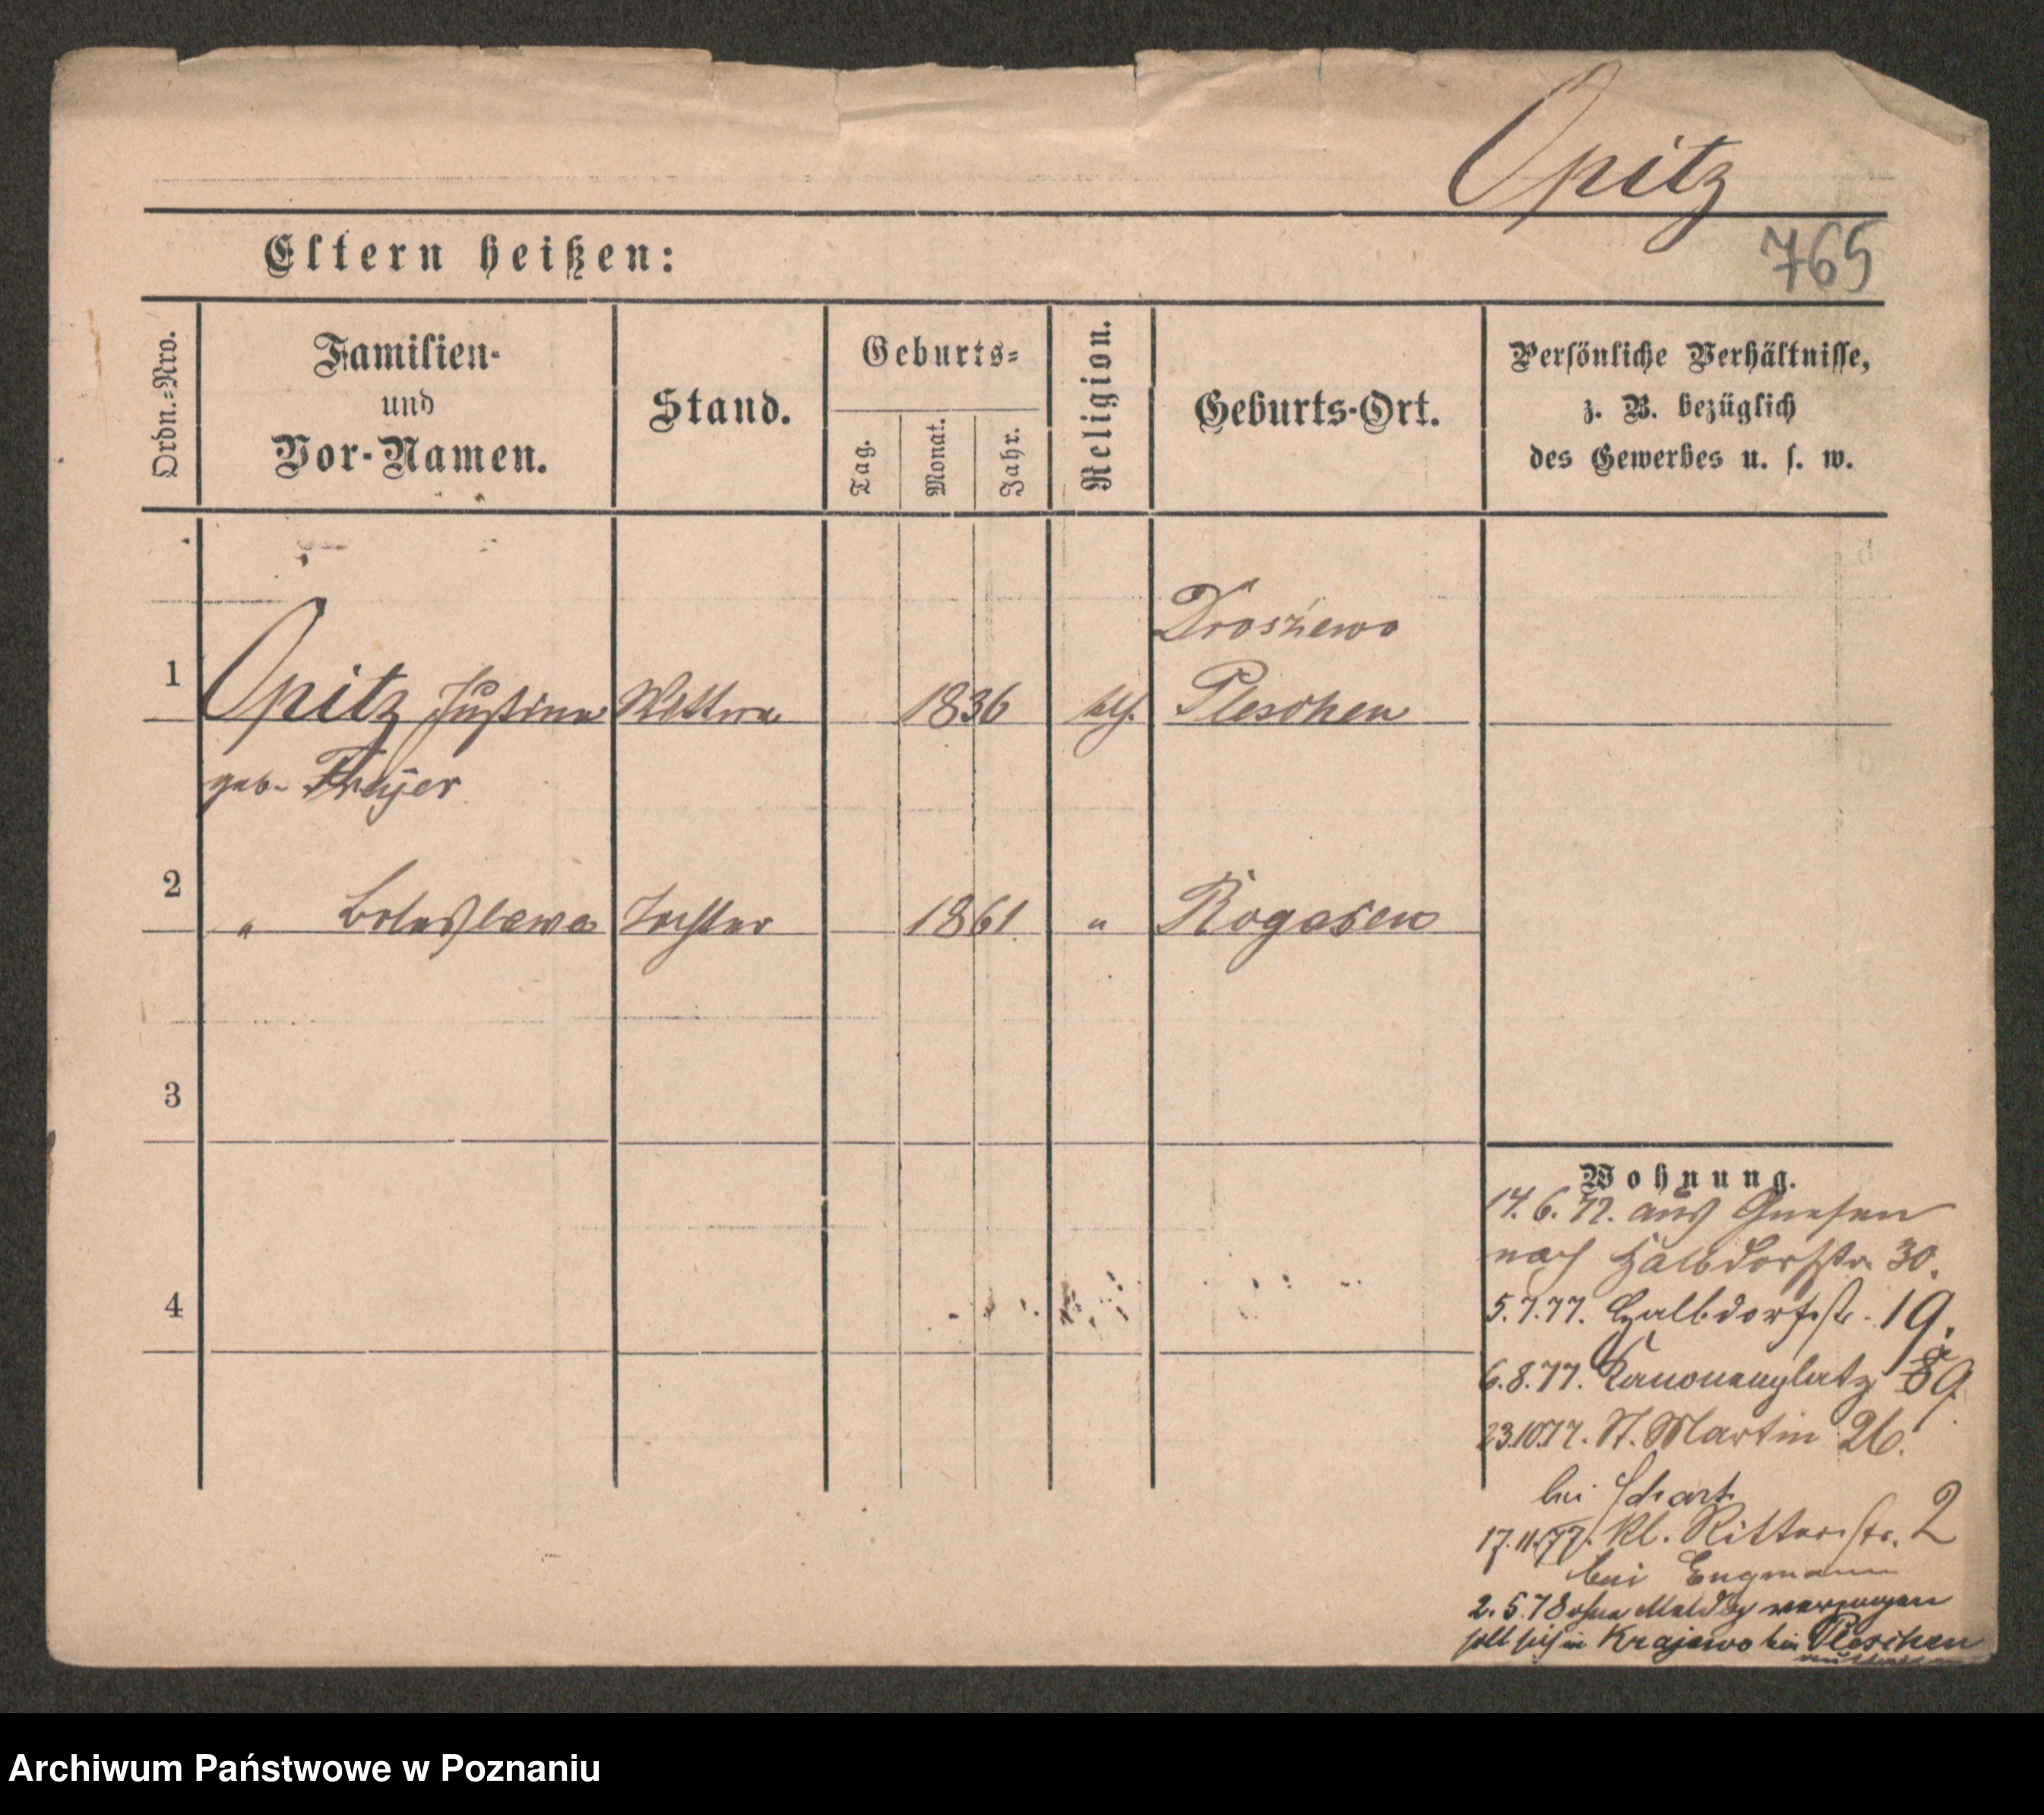 Opitz
765
Eltern heißen:
Ordn.-Nro.
Familien-
und
Vor-Namen.
Stand.
Geburts-
Tag.
Monat.
Jahr.
Religion.
Geburts-Ort.
Persönliche Verhältnisse,
z. B. bezüglich
des Gewerbes u. s. w.
Droszewo
1 Opitz Justina Wittwe 1836 kth. Pleschen
geb. Freyer
2 " Boleslawa Tochter 1861 " Rogasen
3
4
Wohnung.
14. 6. 77. aus Gnesen
nach Halbdorfstr. 30.
5. 7. 77. Halbdorfstr. 19.
6. 8. 77. Kanonenplatz 9.
23.10.77. St. Martin 26.
bei
17. 11. 77. Kl. Ritterstr. 2
bei Engmann
2. 5. 78 ohne Meldg verzogen
soll sich in Krajewo bei Pleschen
Archiwum Państwowe w Poznaniu